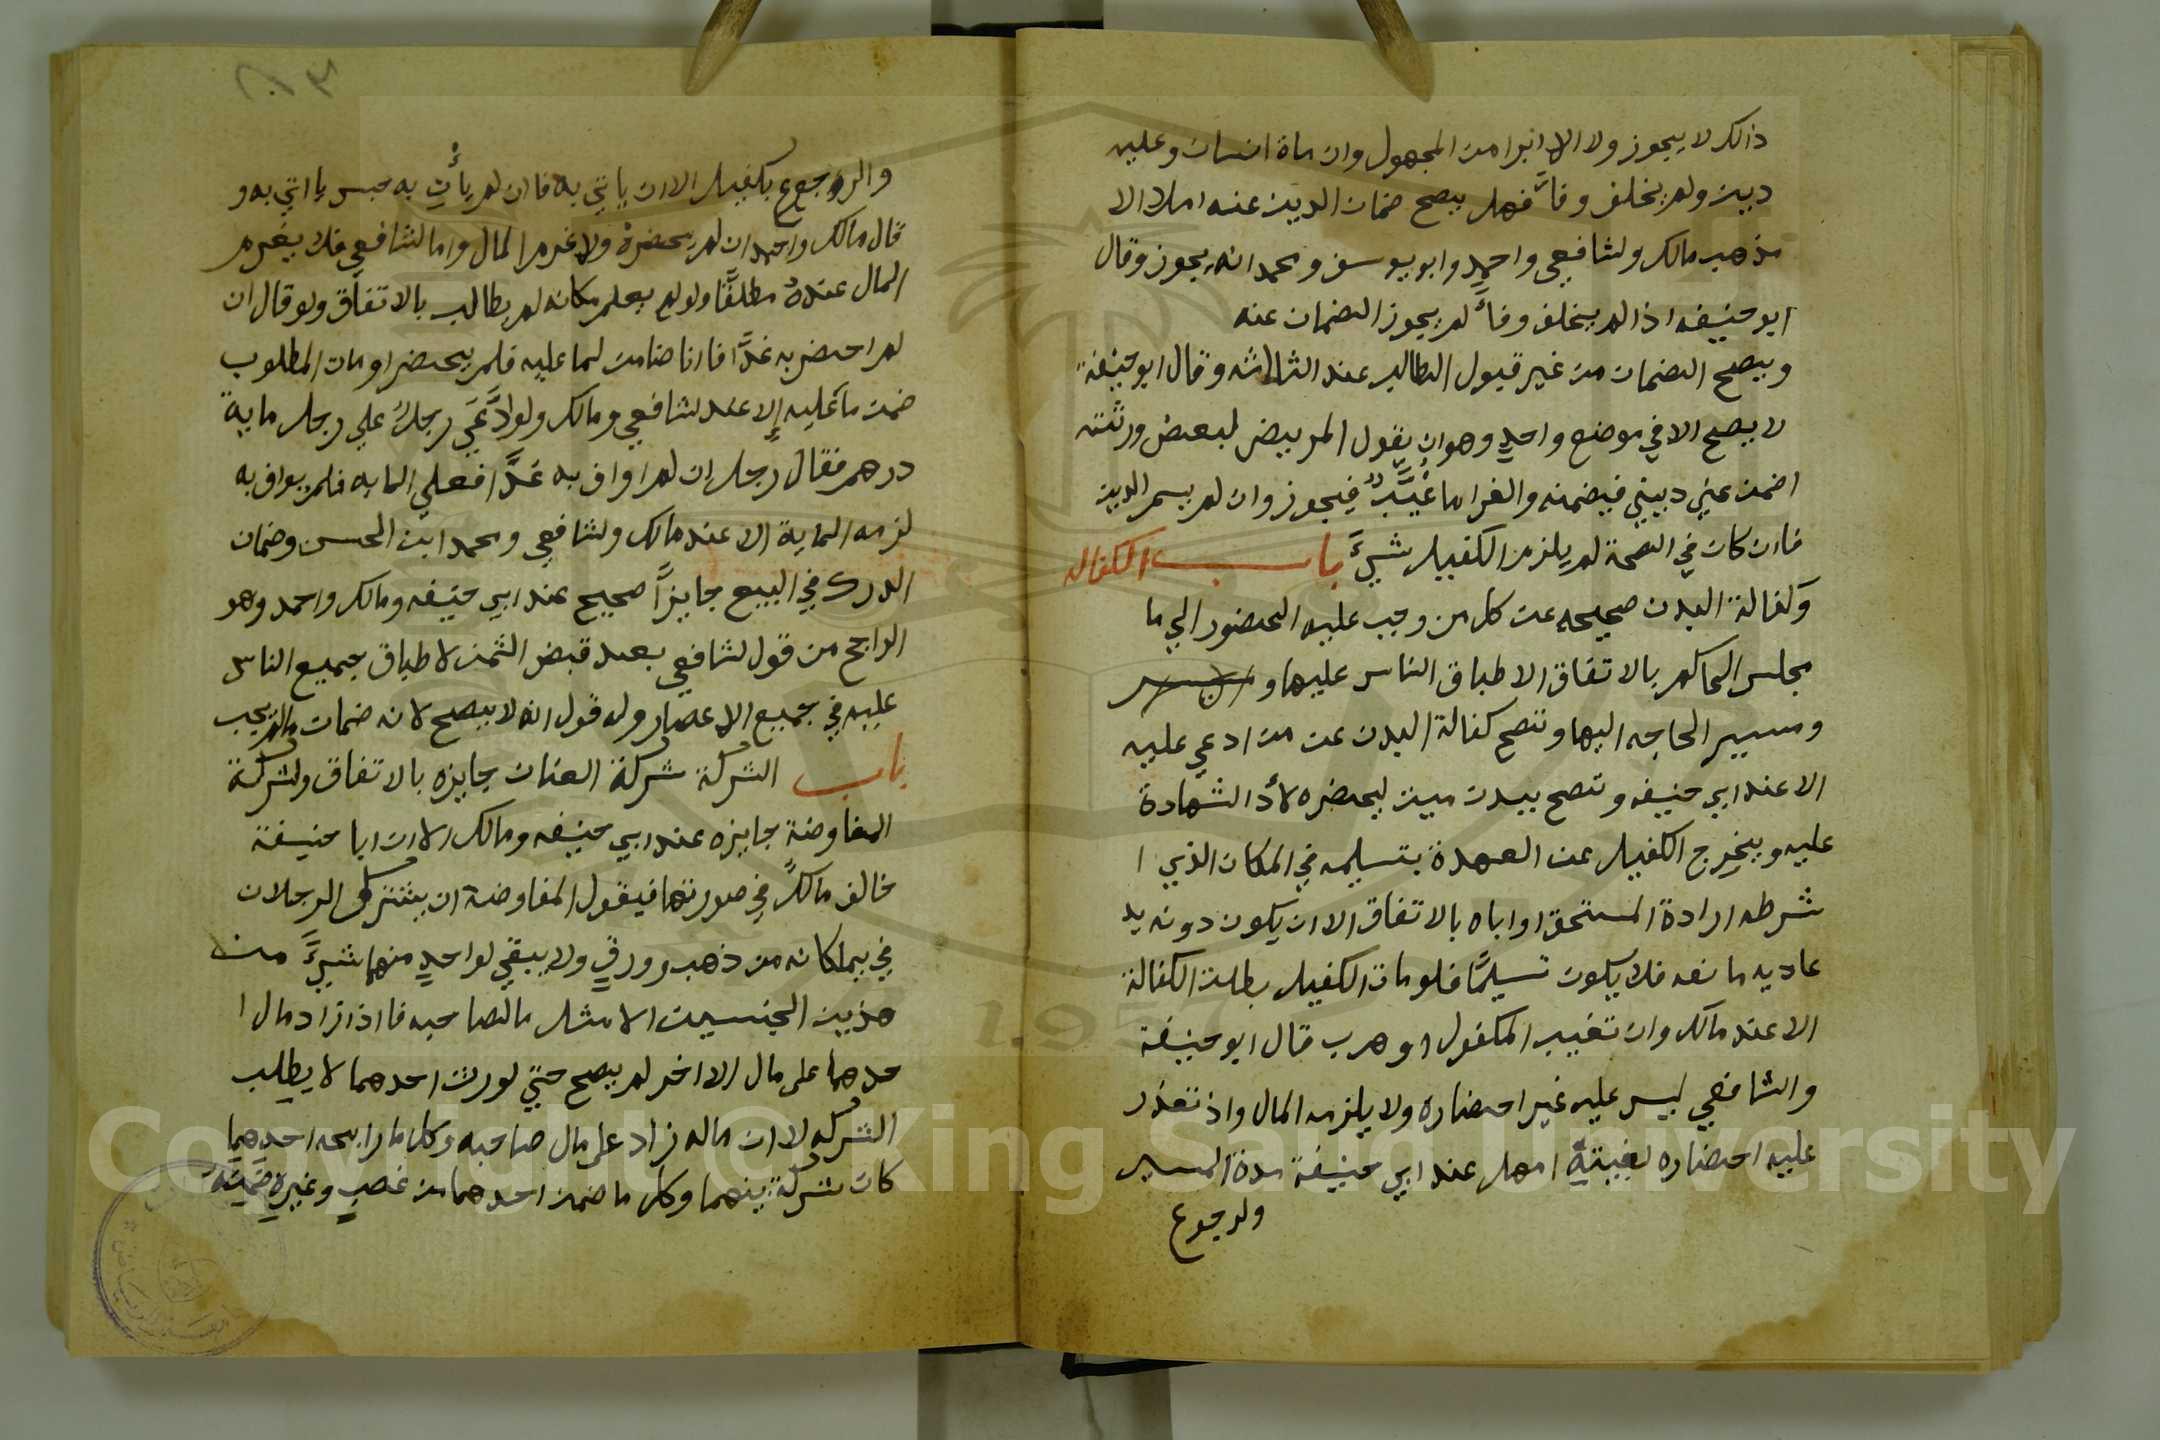 ذالك لا يجوز ولا الابرا من المجهول وان ماة انسان وعليه
دين ولم يخلف وفآ فهل يصح ضمان الدين عنه املا الا
مذهب مالك ولشافعي واحمد وابو يوسف ومحمد انه يجوز وقال
ابو حنيفه اذا لم يخلف وفآ لم يجوز الضمان عنه
ويصح الضمان من غير قبول الطالب عند الثلاثه وقال ابو حنيفة
لا يصح الا في موضع واحد وهو ان يقول المريض لبعض ورثته
اضمن عني ديني فيضمنه والغرا ما غُيَّبٌ فيجوز وان لم يسم الدين
فاان كان في الصحة لم يلزم الكفيل شيءً باب الكفاله
وكفالة البدن صحيحه عن كل من وجب عليه الحضور الي ما
مجلس الحاكم بالاتفاق الاطباق الناس عليها و
ومسير الحاجه اليها وتصح كفالة البدن عن من ادعي عليه
الا عند ابي حنيفه وتصح ببدن ميت ليحضره لأدا الشهادة
عليه ويخرج الكفيل عن العهدة بتسليمه في المكان الذي ا
شرطه ارادة المستحق او اباه بالاتفاق الا ان يكون دونه يد
عاديه مانعه فلا يكون تسليمًا فلو مات الكفيل بطلت الكفالة
الا عند مالك وان تغيب المكفول او هرب قال ابو حنيفة
والشافعي ليس عليه غير احضاره ولا يلزمه المال واذ تعذر
عليه احضاره لغيبته امهل عند ابي حنيفة مدة المسير
ولرجوع
٨٠٣
والروجوع بكفيل الا ان ياتي به فاان لم يأت به حبس يااتي به و
قال مالك واحمد ان لم يحضرهُ ولا غرم المال واما لشافعي فلا يغرم
المال عندهُ مطلقًا ولو لم يعلم مكانه لم يطالب بالاتفاق ولو قال ان
لم احضر به غدًا فاانا ضامن لما عليه فلم يحضر او مات المطلوب
ضمن ما عليه إلا عند لشافعي ومالك ولو ادَّعَي رجلٌ علي رجل ماية
درهم فقال رجل إن لم اواف به غدًا فعلي المايه فلم يواف به
لزمه الماية الا عند مالك ولشافعي ومحمد ابن الحسن وضمان
الدرك في البيع جايزاً صحيح عند ابي حنيفه ومالك واحمد وهو
الراجح من قول لشافعي بعد قبض الثمن لاطباق جميع الناس
عليه في جميع الاعصار وله قول انه لا يصح لانه ضمان مالم يجب
باب الشركة شركة العنان جايزه بالاتفاق ولشركة
المفاوضة جايزه عند ابي حنيفه ومالك الا ان ابا حنيفة
خالف مالكً في صورتها فيقول المفاوضة ان يشترك الرجلان
في يملكانه من ذهب وورقٍ ولا يبقي لواحدٍ منهما شيءً من
هذين الجنسين الا مثل ما لصاحبه فااذا زاد مال ا
حدهما على مال الاخر لم يصح حتي لو ورث احدهما لا يطلب
الشركه لا ان ماله زاد على مال صاحبه وكل ما رابحه احدهما
كان شركة بينهما وكل ما ضمن احدهما من غصبٍ وغيره ضمنه
Copyright © King Saud University
1957